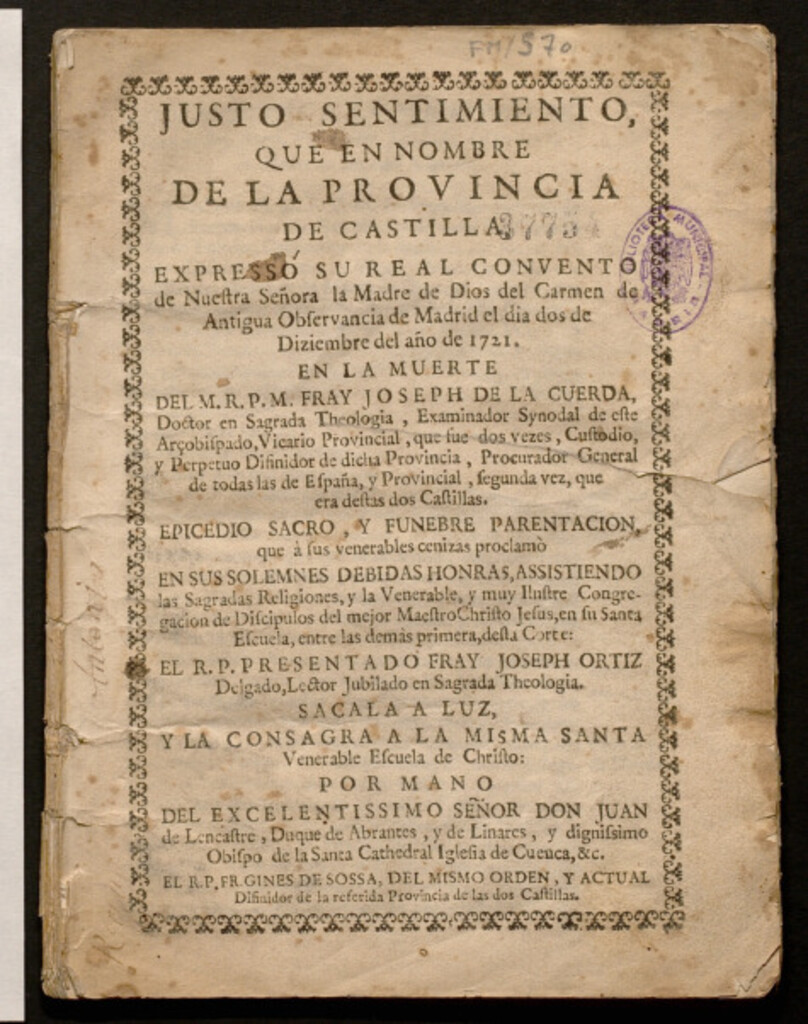 FM/570
JUSTO SENTIMIENTO,
QUE EN NOMBRE
DE LA PROVINCIA
DE CASTILLA,
37754
EXPRESSÓ SU REAL CONVENTO
de Nueſtra Señora la Madre de Dios del Carmen de
Antigua Obſervancia de Madrid el dia dos de
Diziembre del año de 1721.
EN LA MUERTE
DEL M. R. P. M. FRAY JOSEPH DE LA CUERDA,
Doctor en Sagrada Theologia, Examinador Synodal de eſte
Arçobiſpado, Vicario Provincial, que fue dos vezes, Cuſtodio,
y Perpetuo Difinidor de dicha Provincia, Procurador General
de todas las de Eſpaña, y Provincial, ſegunda vez, que
era deſtas dos Caſtillas.
EPICEDIO SACRO, Y FUNEBRE PARENTACION,
que à ſus venerables cenizas proclamò
EN SUS SOLEMNES DEBIDAS HONRAS, ASSISTIENDO
las Sagradas Religiones, y la Venerable, y muy Iluſtre Congre-
gacion de Diſcipulos del mejor Maeſtro Chriſto Jeſus, en ſu Santa
Eſcuela, entre las demàs primera, deſta Corte:
EL R. P. PRESENTADO FRAY JOSEPH ORTIZ
Delgado, Lector Jubilado en Sagrada Theologia.
SACALA A LUZ,
Y LA CONSAGRA A LA MISMA SANTA
Venerable Eſcuela de Chriſto:
POR MANO
DEL EXCELENTISSIMO SEÑOR DON JUAN
de Lencaſtre, Duque de Abrantes, y de Linares, y digniſsimo
Obiſpo de la Santa Cathedral Igleſia de Cuenca, &c.
EL R. P. FR. GINES DE SOSSA, DEL MISMO ORDEN, Y ACTUAL
Difinidor de la referida Provincia de las dos Caſtillas.
BIBLIOTECA MUNICIPAL
MADRID